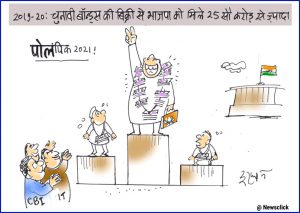 2019-20: चुनावी बॉन्ड्स की बिक्री से भाजपा को मिले 25 सौ करोड़ से ज़्यादा
पोलंपिक 2021!
CBI
IT
© Newsclick